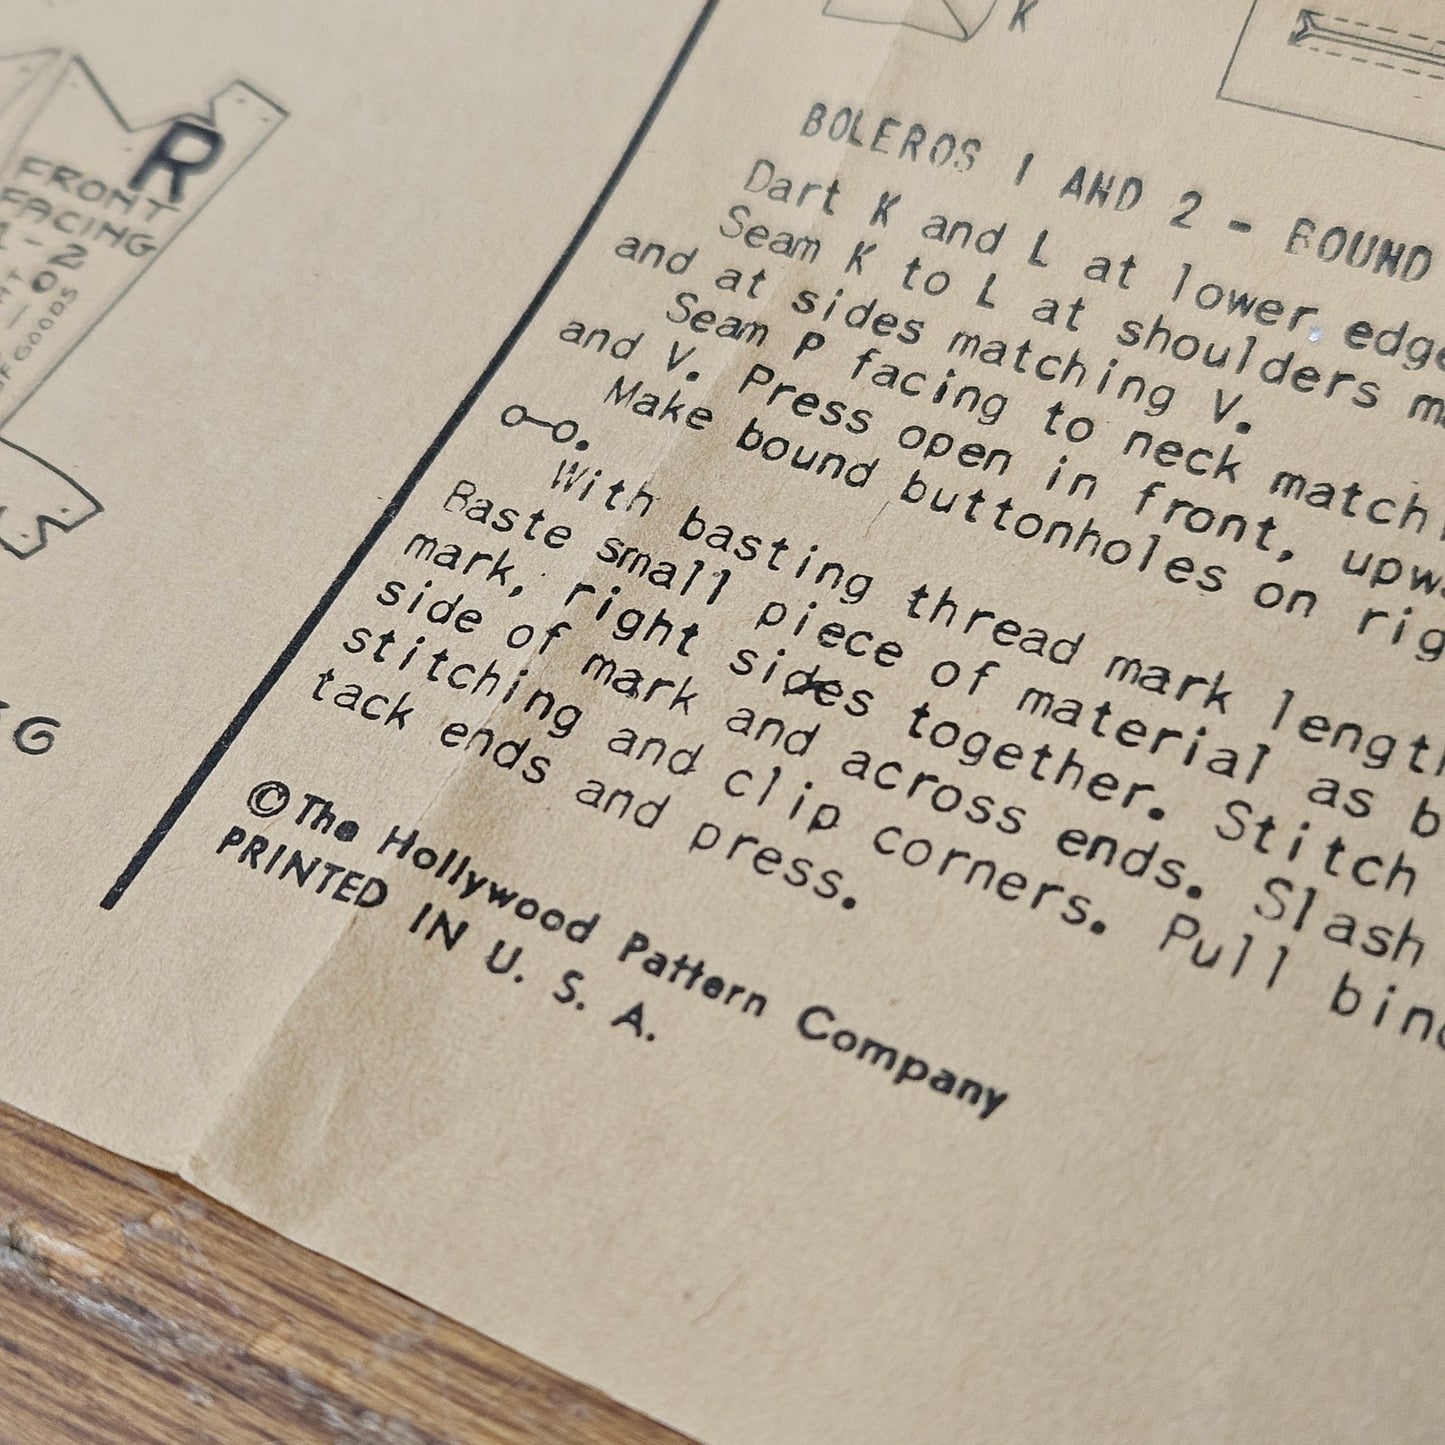 K
R
FRONT
FACING
1-2
OF GOODS
G
BOLEROS 1 AND 2 - BOUND
Dart K and L at lower edge
Seam K to L at shoulders
and at sides matching V.
Seam P facing to neck
and V. Press open in front,
Make bound buttonholes on
o-o.
With basting thread mark
Baste small piece of material as
mark, right sides together. Stitch
side of mark and across ends. Slash
stitching and clip corners. Pull
tack ends and press.
© The Hollywood Pattern Company
PRINTED IN U. S. A.